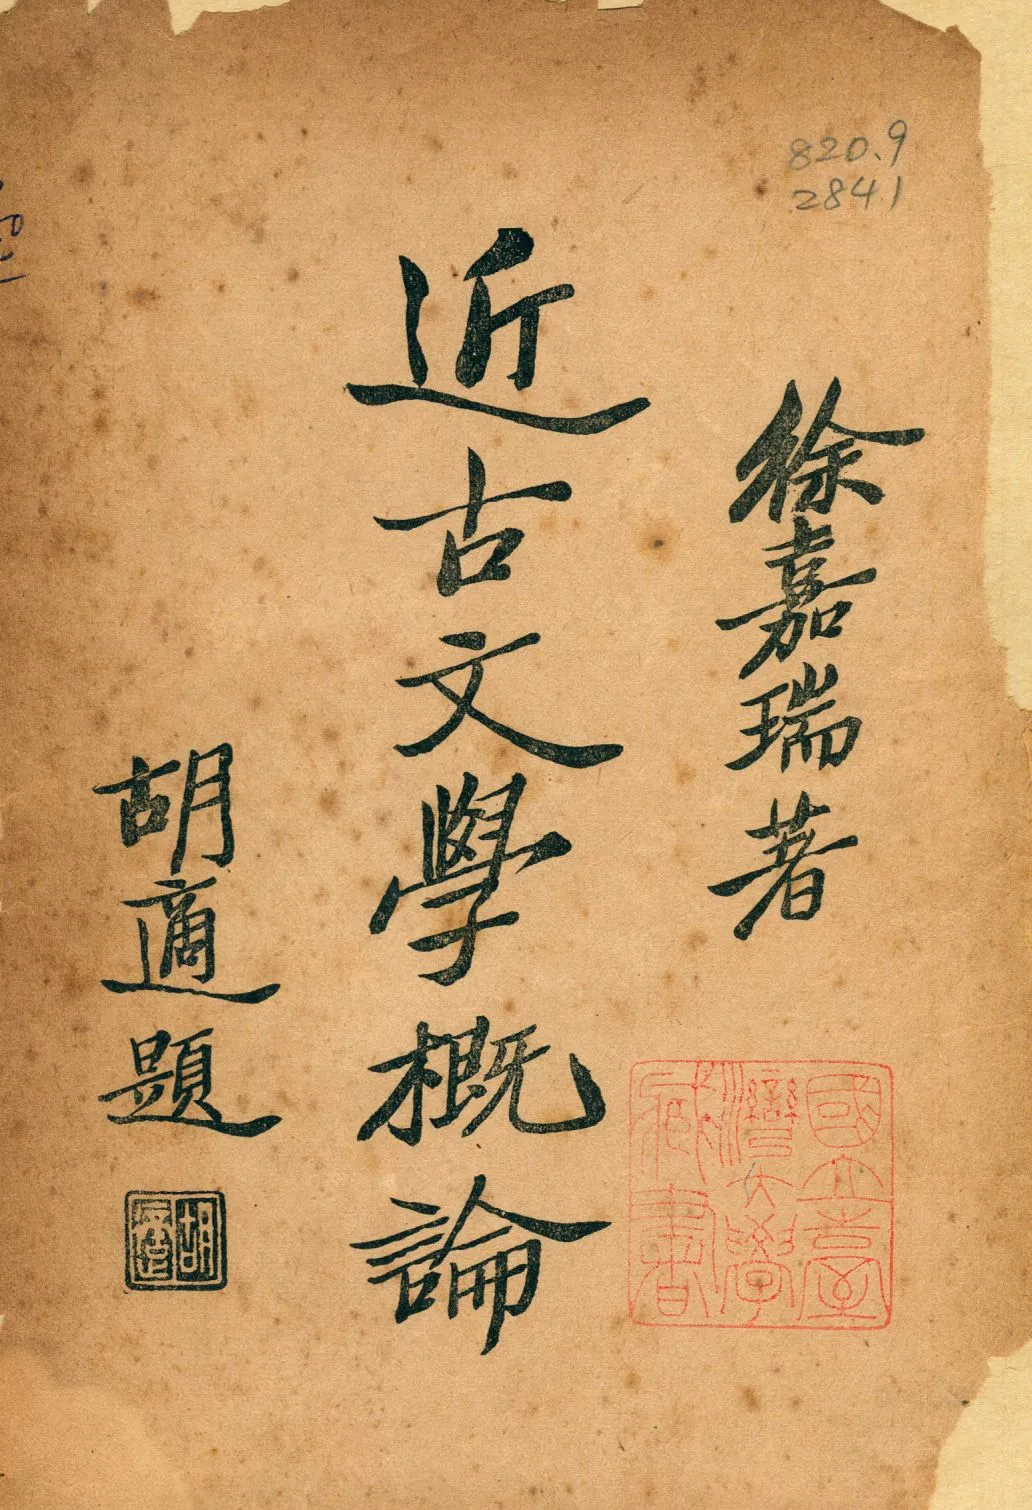 820.9
2841
徐嘉瑞著
近古文學概論
胡適題
胡適
國立臺
灣大學
藏書